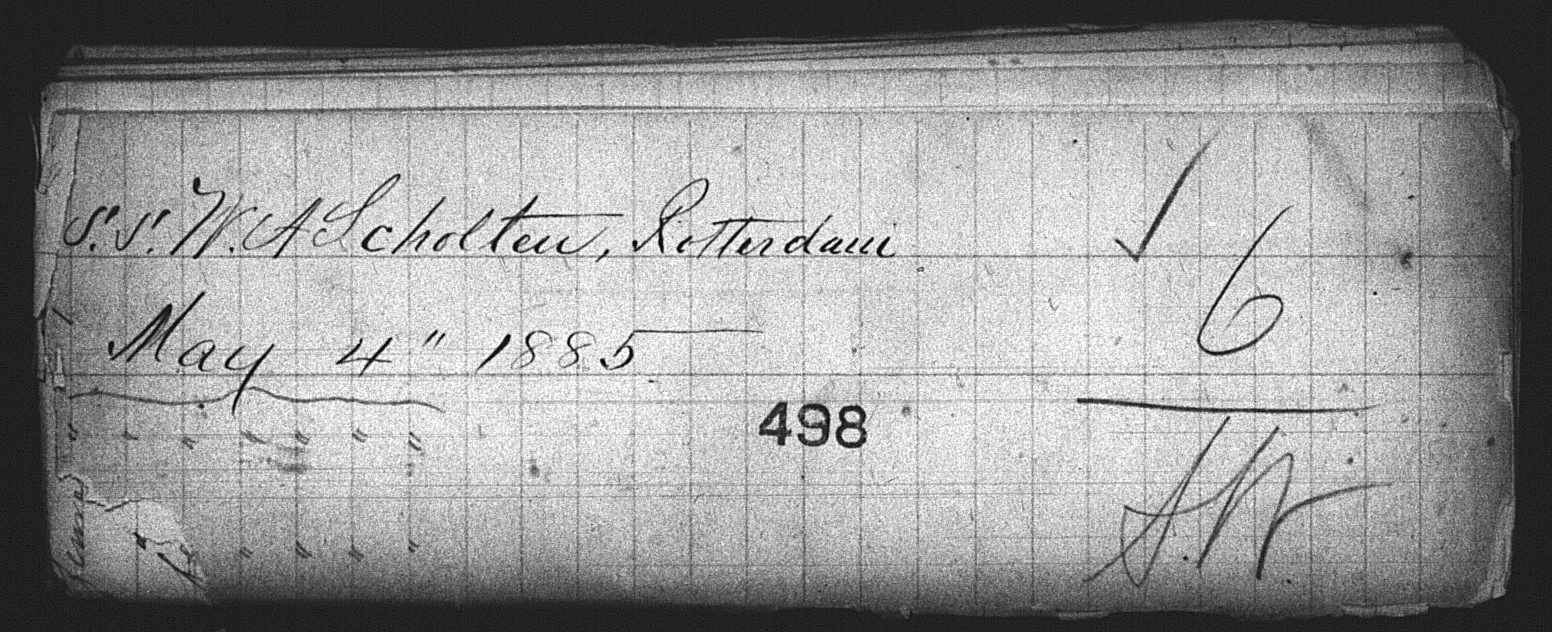 S.S. W. A Scholten, Rotterdam
✓ 6
May 4" 1885
498
" " " " " " "
" " " " "